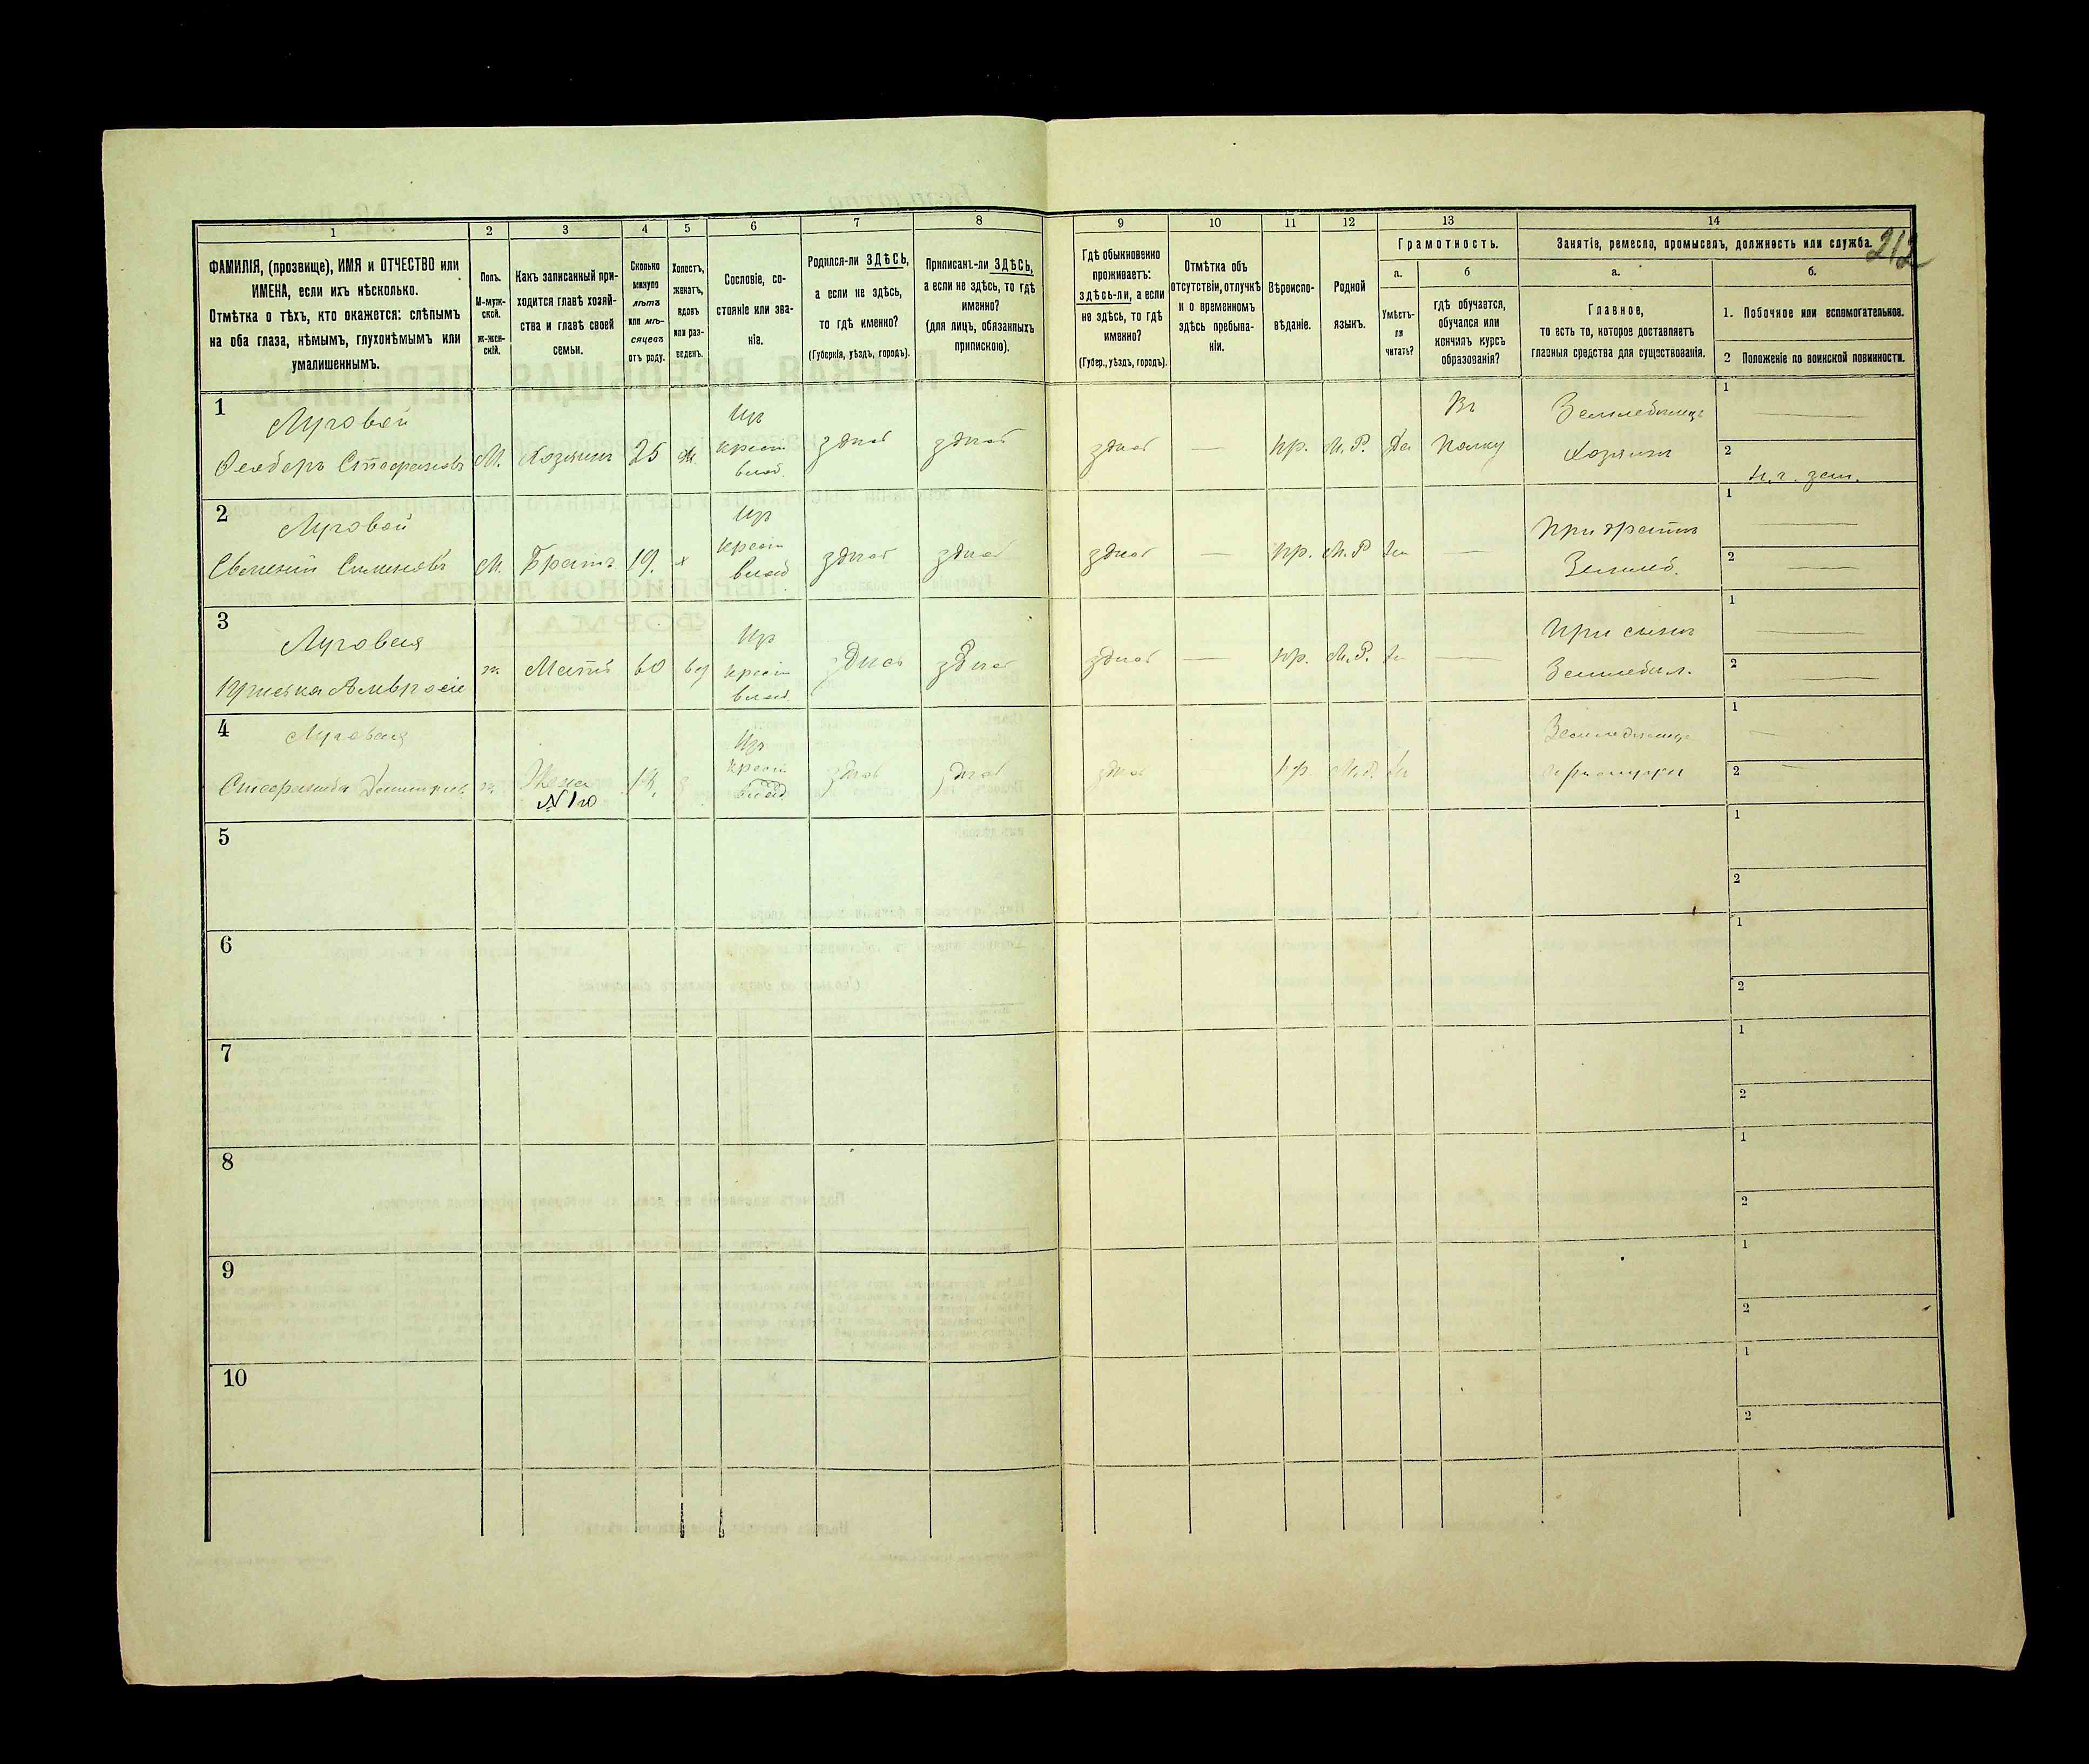 212
1 2 3 4 5 6 7 8 9 10 11 12 13 14
ФАМИЛІЯ, (прозвище), ИМЯ и ОТЧЕСТВО или
ИМЕНА, если ихъ нѣсколько.
Отмѣтка о тѣхъ, кто окажется: слѣпымъ
на оба глаза, нѣмымъ, глухонѣмымъ или
умалишеннымъ.
Полъ.
М-муж-
ской.
Ж-жен-
скій.
Какъ записанный при-
ходится главѣ хозяй-
ства и главѣ своей
семьи.
Сколько
минуло
лѣтъ
или мѣ-
сяцевъ
отъ роду.
Холостъ,
женатъ,
вдовъ
или раз-
веденъ.
Сословіе, со-
стояніе или зва-
ніе.
Родился-ли ЗДѢСЬ,
а если не здѣсь,
то гдѣ именно?
(Губернія, уѣздъ, городъ).
Приписанъ-ли ЗДѢСЬ,
а если не здѣсь, то гдѣ
именно?
(для лицъ, обязанныхъ
припискою).
Гдѣ обыкновенно
проживаетъ:
здѣсь-ли, а если
не здѣсь, то гдѣ
именно?
(Губер., уѣздъ, городъ).
Отмѣтка объ
отсутствіи, отлучкѣ
и о временномъ
здѣсь пребыва-
ніи.
Вѣроиспо-
вѣданіе.
Родной
языкъ.
Грамотность.
а. б
Умѣетъ-
ли
читать?
гдѣ обучается,
обучался или
кончилъ курсъ
образованія?
Занятіе, ремесло, промыселъ, должность или служба.
а. б.
Главное,
то есть то, которое доставляетъ
главныя средства для существованія.
1. Побочное или вспомогательное.
2 Положеніе по воинской повинности.
1
Луговой
М. Хозяинъ 25 ж
Изъ
крест
влад.
здѣсь здѣсь здѣсь — пр. М.Р. Да
Въ
Полку
Хозяинъ
1
2
2
Луговой
М. Братъ 19. х
Изъ
крест
влад
здѣсь здѣсь здѣсь — пр. М.Р —
При братѣ
Землед.
1
2
3
Луговая
ж. Мать 60 вд
Изъ
крест
влад.
здѣсь здѣсь здѣсь — пр. М.Р. —
При сынѣ
1
2
4
Луговая
ж. Жена
№ 1го
Изъ
крест
влад
здѣсь здѣсь здѣсь пр М.Р.
1
2
5
1
2
6
1
2
7
1
2
8
1
2
9
1
2
10
1
2